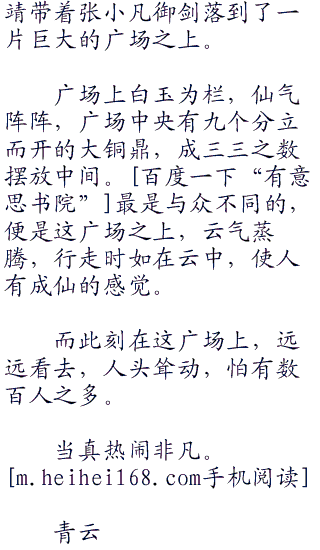 靖带着张小凡御剑落到了一
片巨大的广场之上。
广场上白玉为栏，仙气
阵阵，广场中央有九个分立
而开的大铜鼎，成三三之数
摆放中间。[百度一下“有意
思书院”]最是与众不同的，
便是这广场之上，云气蒸
腾，行走时如在云中，使人
有成仙的感觉。
而此刻在这广场上，远
远看去，人头耸动，怕有数
百人之多。
当真热闹非凡。
[m.heihei168.com手机阅读]
青云